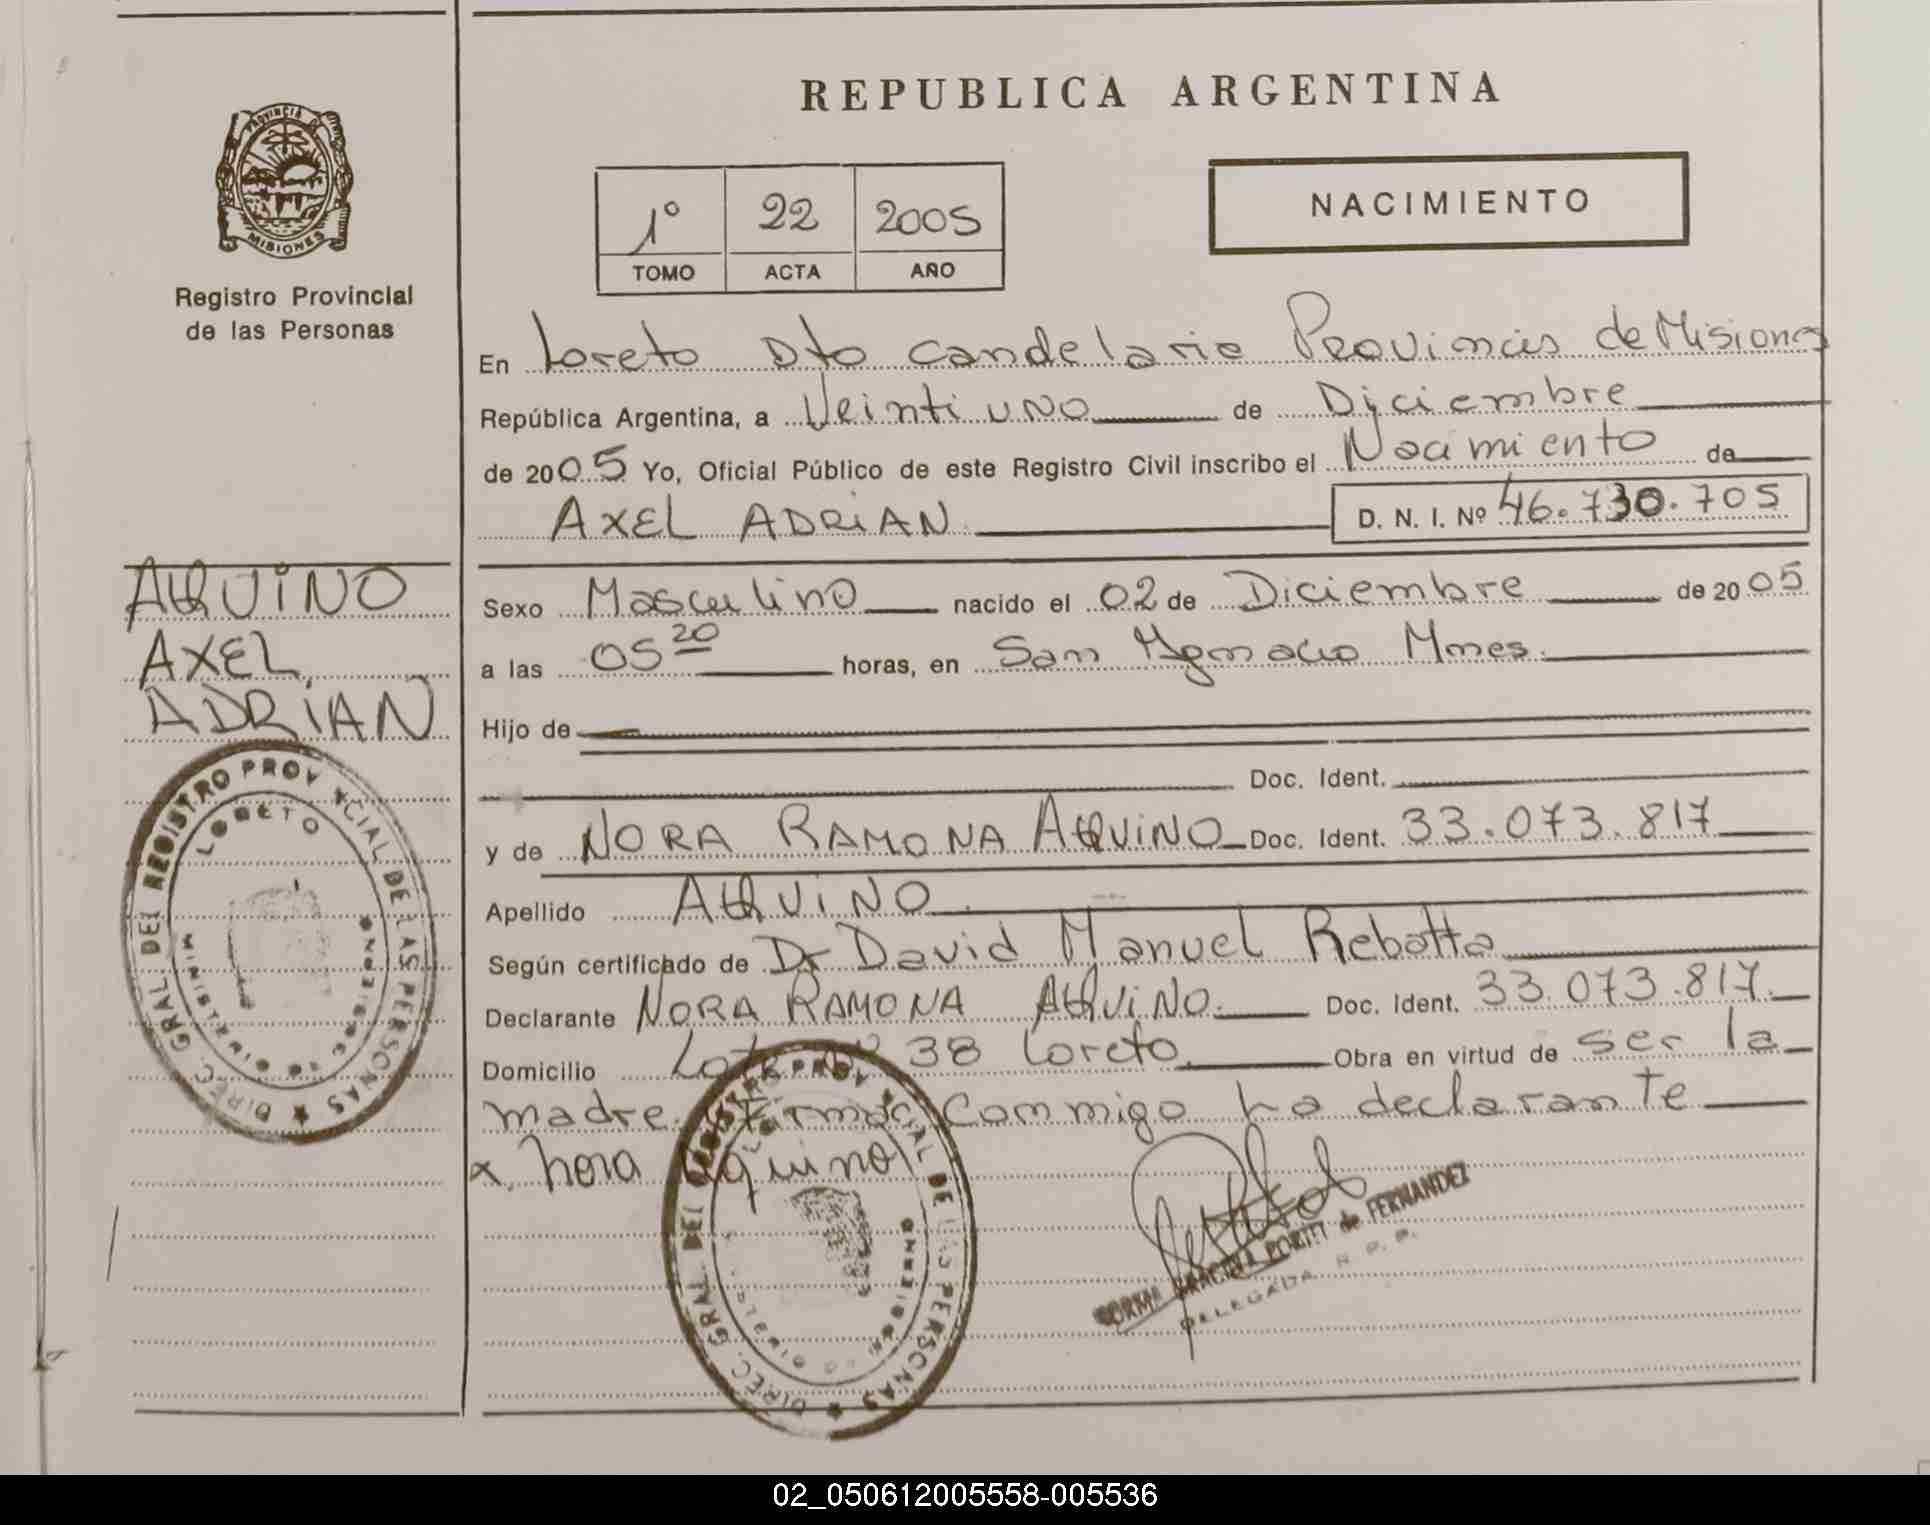 REPUBLICA ARGENTINA
PROVINCIA DE MISIONES
Registro Provincial
de las Personas
1º 22 2005
TOMO ACTA AÑO
NACIMIENTO
En Loreto Dto Candelaria Provincia de Misiones
República Argentina, a Veintiuno de Diciembre
de 2005 Yo, Oficial Público de este Registro Civil inscribo el Nacimiento de
AXEL ADRIAN D. N. I. Nº 46.730.705
AQUINO
AXEL
ADRIAN
Sexo Masculino nacido el 02 de Diciembre de 2005
a las 05 20 horas, en San Ygnacio Mnes.
Hijo de
Doc. Ident.
y de NORA RAMONA AQUINO Doc. Ident. 33.073.817
Apellido AQUINO
Según certificado de Dr David Manuel Rebatta
Declarante NORA RAMONA AQUINO Doc. Ident. 33.073.817
Domicilio Lote nº 38 Loreto Obra en virtud de ser la
madre. Firma Conmigo la declarante
x. Nora Aquino
DIREC. GRAL. DEL REGISTRO PROVINCIAL DE LAS PERSONAS
LORETO
MISIONES
DIREC. GRAL. DEL REGISTRO PROVINCIAL DE LAS PERSONAS
PORTTI de FERNANDEZ
DELEGADA R. P. P.
02_050612005558-005536